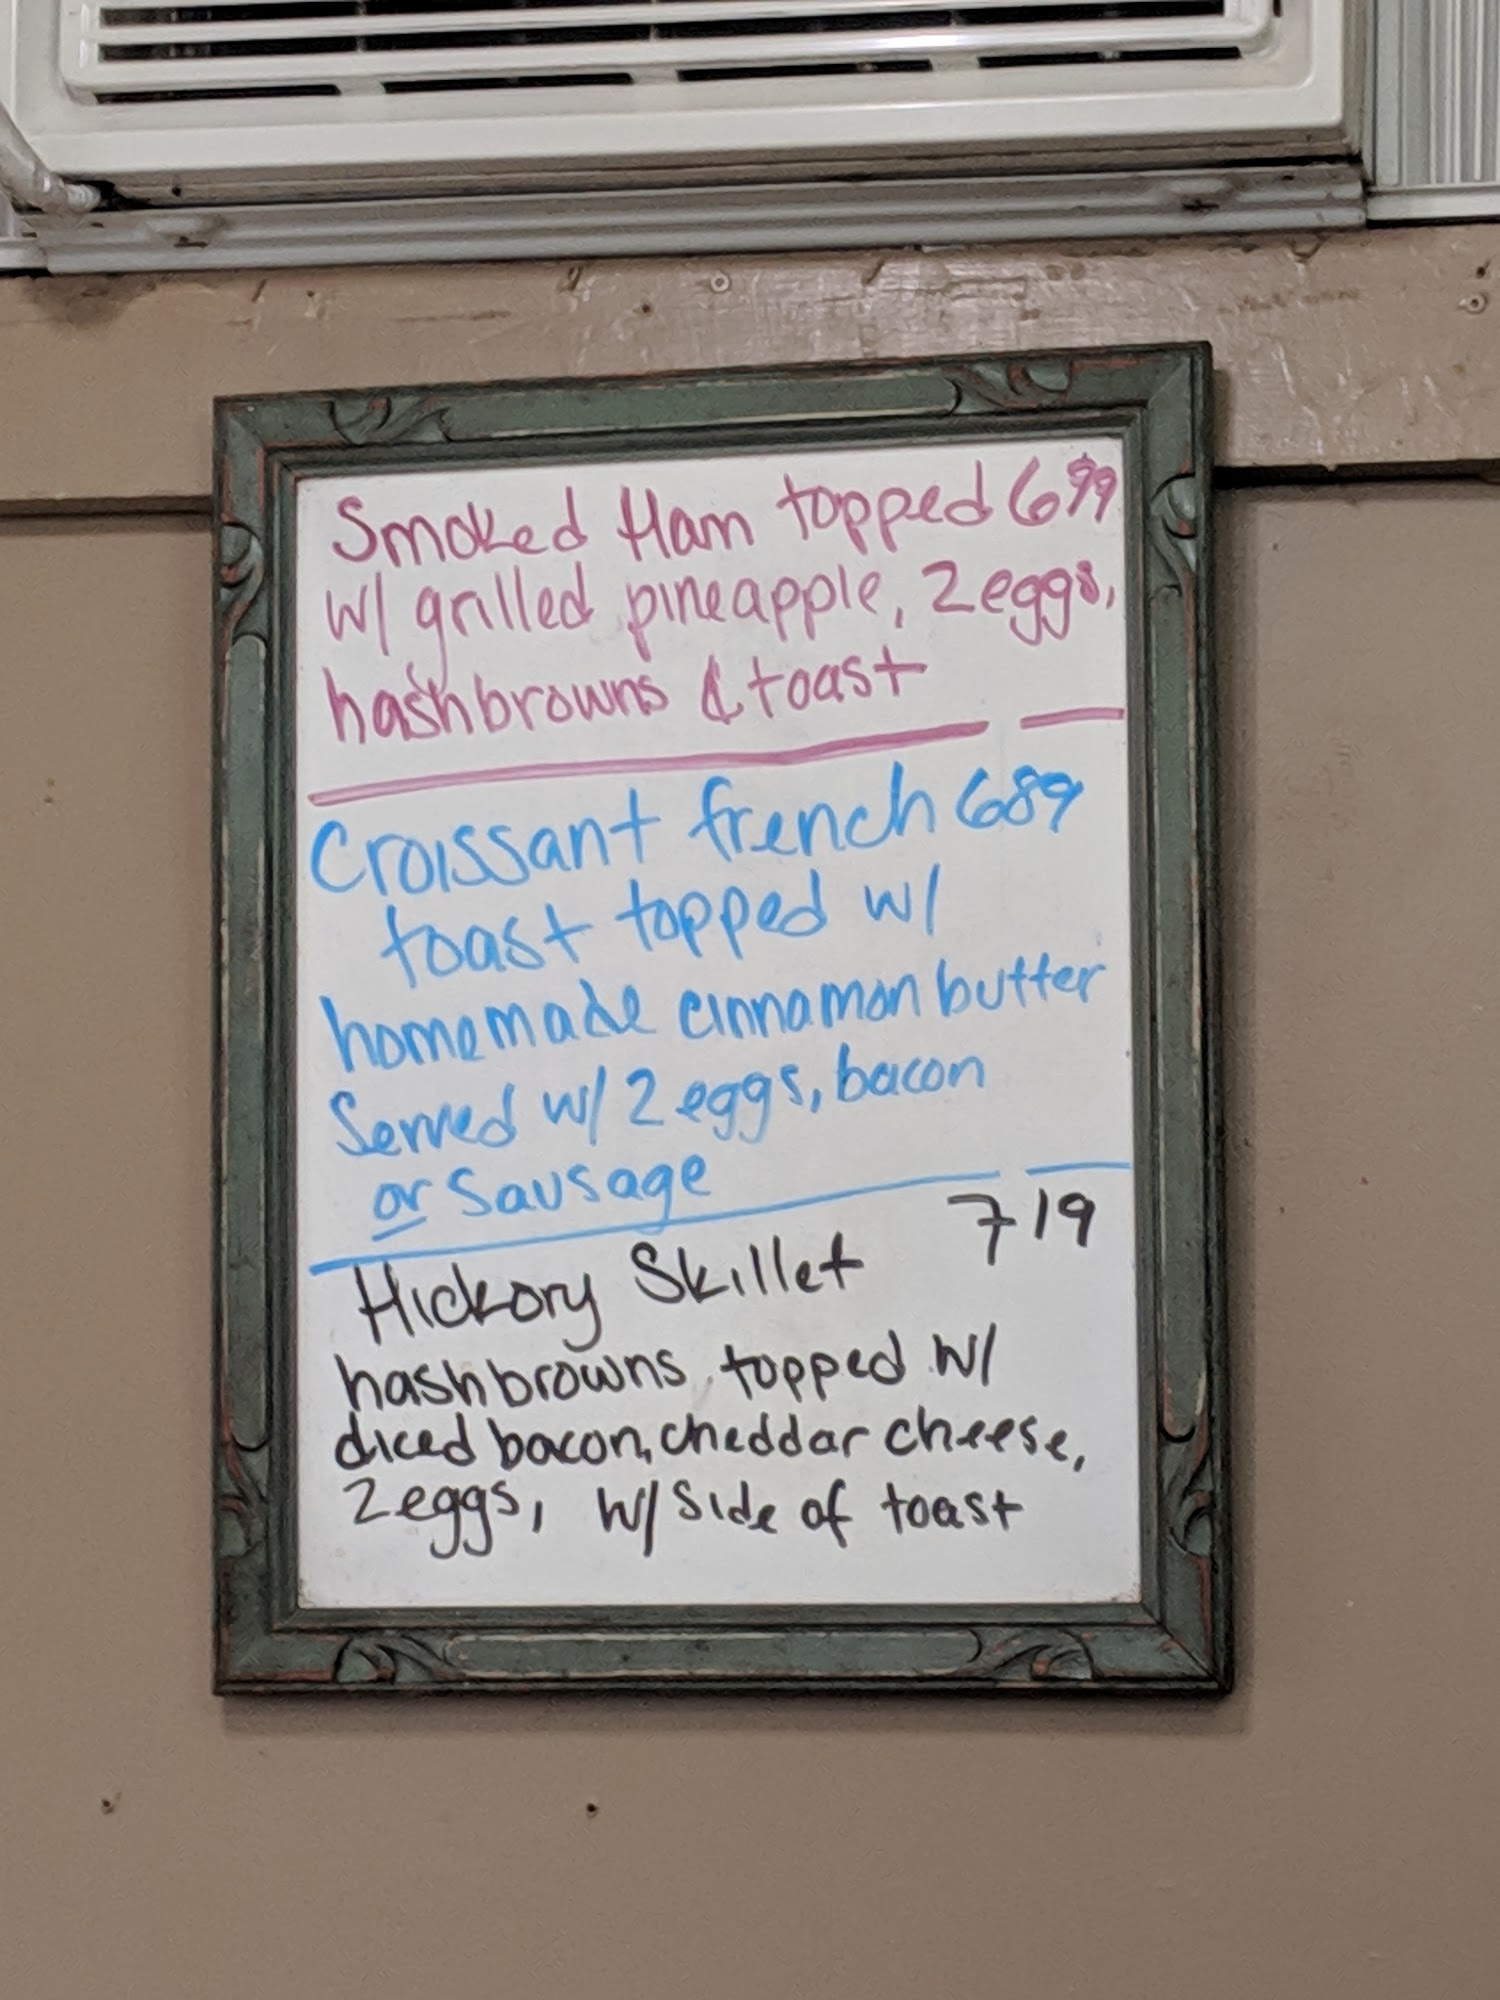 Smoked Ham topped 6 99
w/ grilled pineapple, 2 eggs,
hashbrowns & toast
Croissant french 6 89
toast topped w/
homemade cinnamon butter
Served w/ 2 eggs, bacon
or sausage
Hickory Skillet 7 19
hashbrowns, topped w/
diced bacon, cheddar cheese,
2 eggs, w/ side of toast